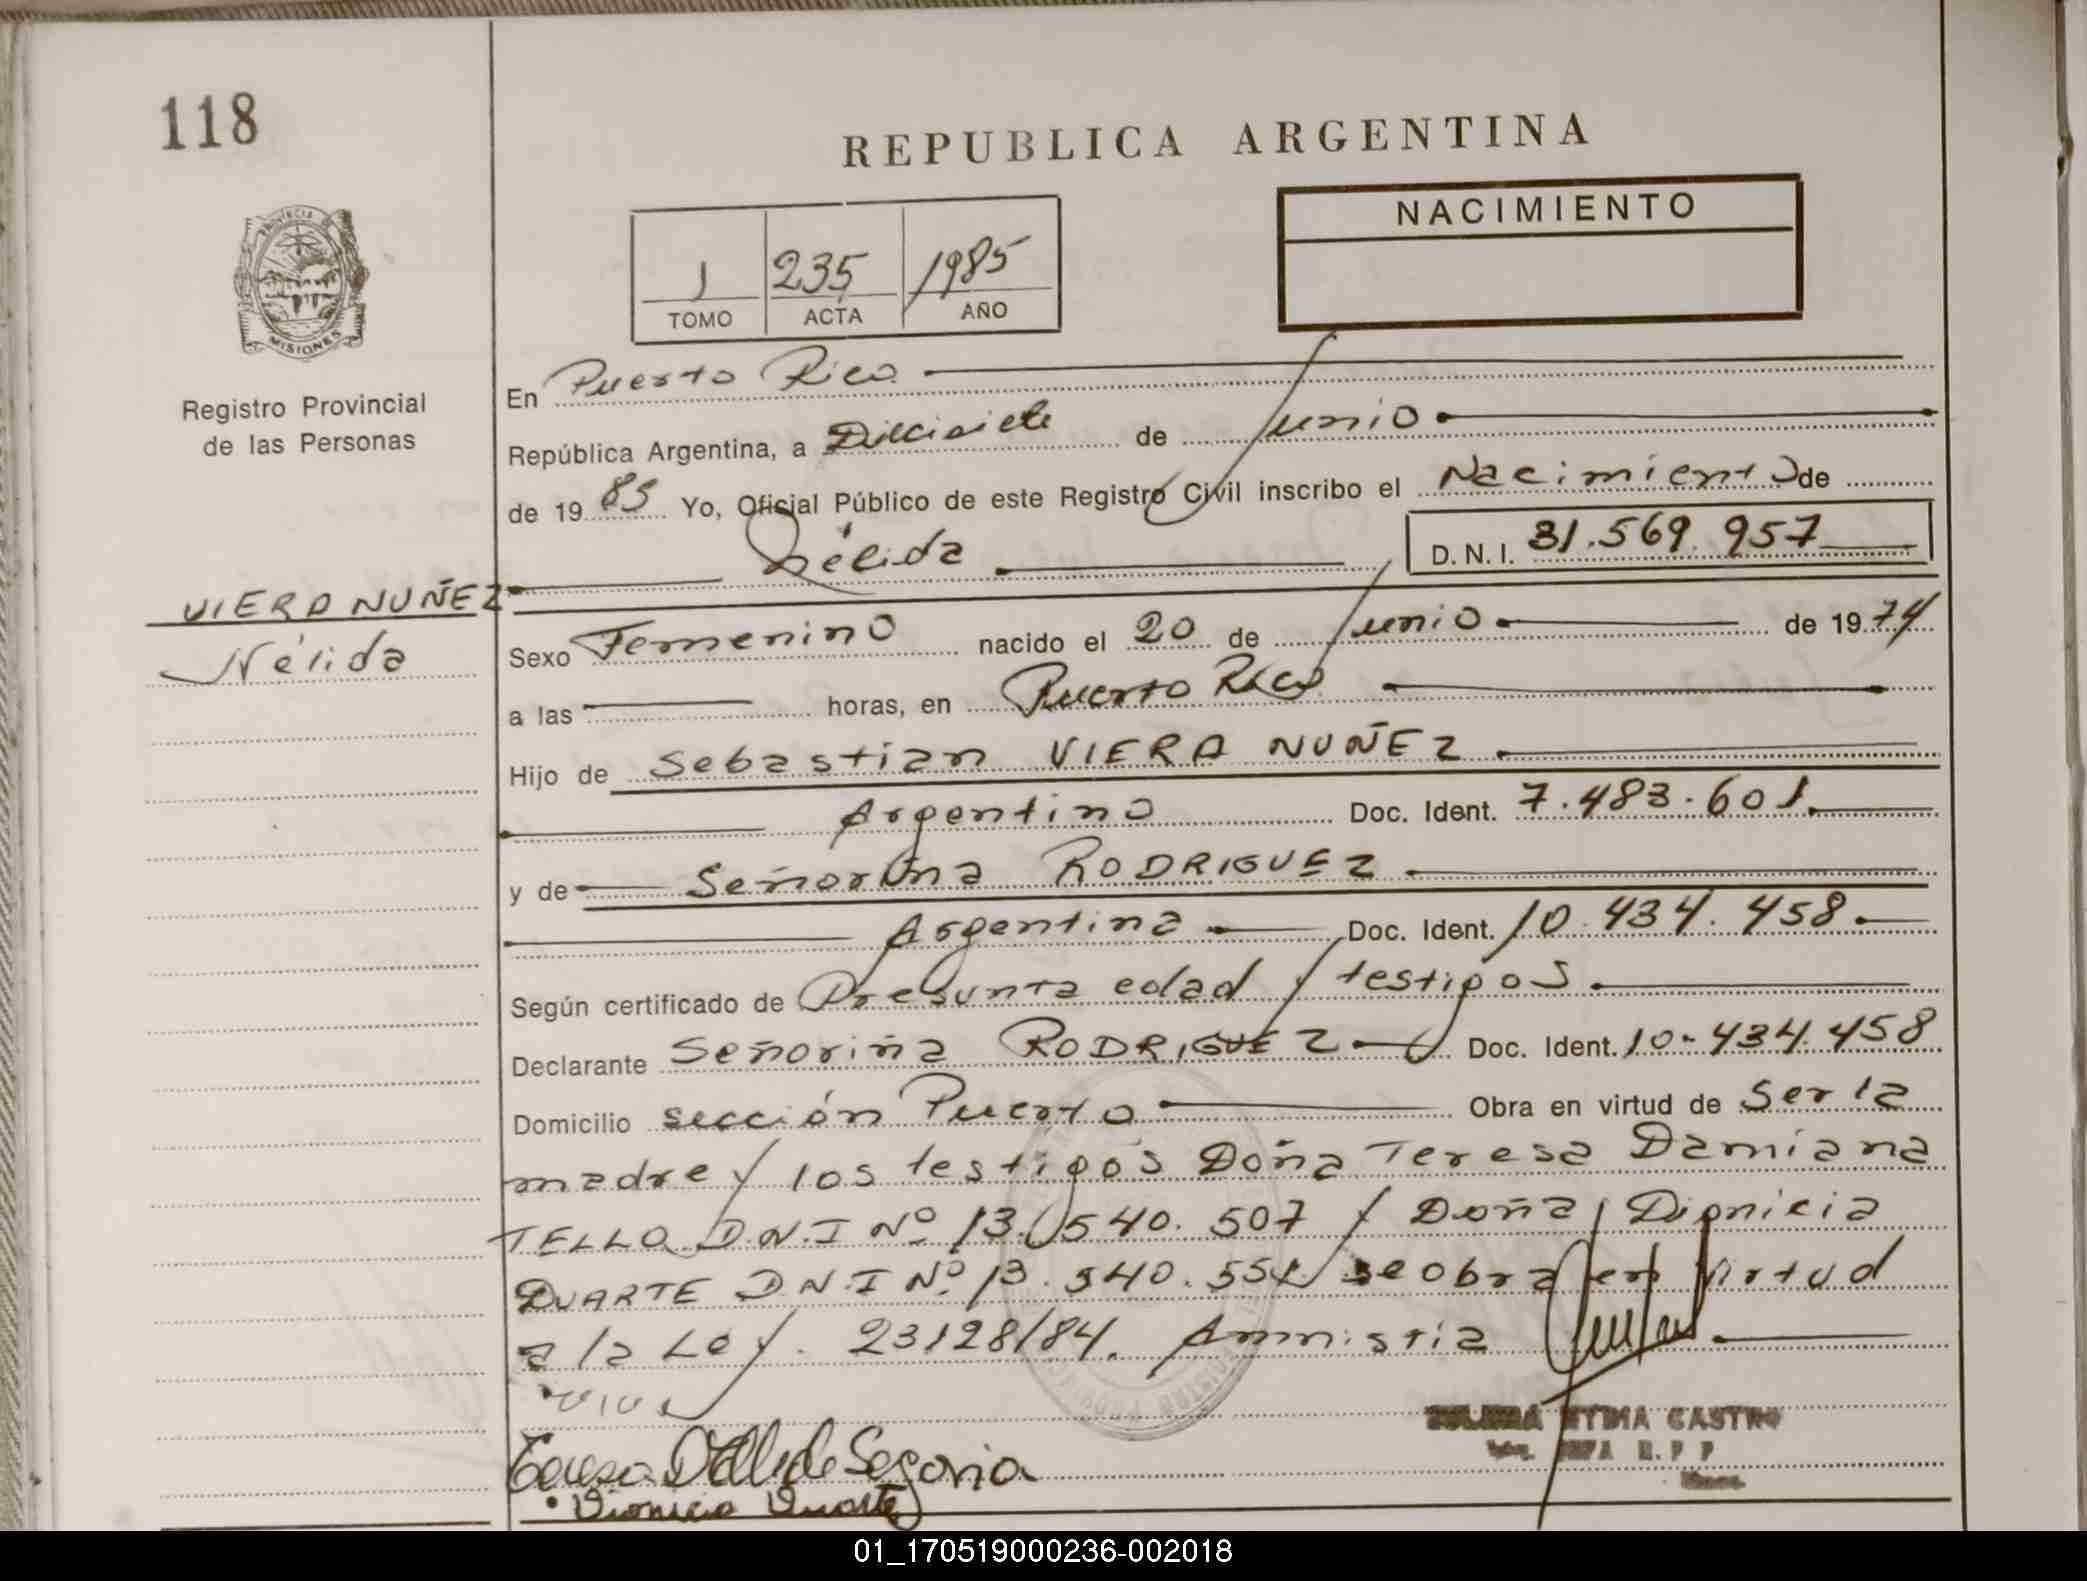 118
REPUBLICA ARGENTINA
NACIMIENTO
1 235 1985
TOMO ACTA AÑO
PROVINCIA D MISIONES
Registro Provincial
de las Personas
En Puerto Rico
República Argentina, a Diecisiete de Junio
de 1985 Yo, Oficial Público de este Registro Civil inscribo el Nacimiento de
Nélida D.N.I. 31.569.957
VIERA NUÑEZ
Nélida
Sexo Femenino nacido el 20 de Junio de 1974
a las horas, en Puerto Rico
Hijo de Sebastian VIERA NUÑEZ
Argentino Doc. Ident. 7.483.601
y de Señoriña RODRIGUEZ
Argentina Doc. Ident. 10.434.458
Según certificado de Presunta edad y testigos
Declarante Señoriña RODRIGUEZ Doc. Ident. 10.434.458
Domicilio sección Puerto Obra en virtud de Ser la
madre y los testigos Doña Teresa Damiana
TELLO D.N.I Nº 13.540.507 y Doña Dionicia
DUARTE D.N.I Nº 13.540.551 se obra en virtud
a la Ley. 23128/84. Amnistia
Teresa D Tello de Segovia
Dionicia Duarte
CASTRO
01_170519000236-002018